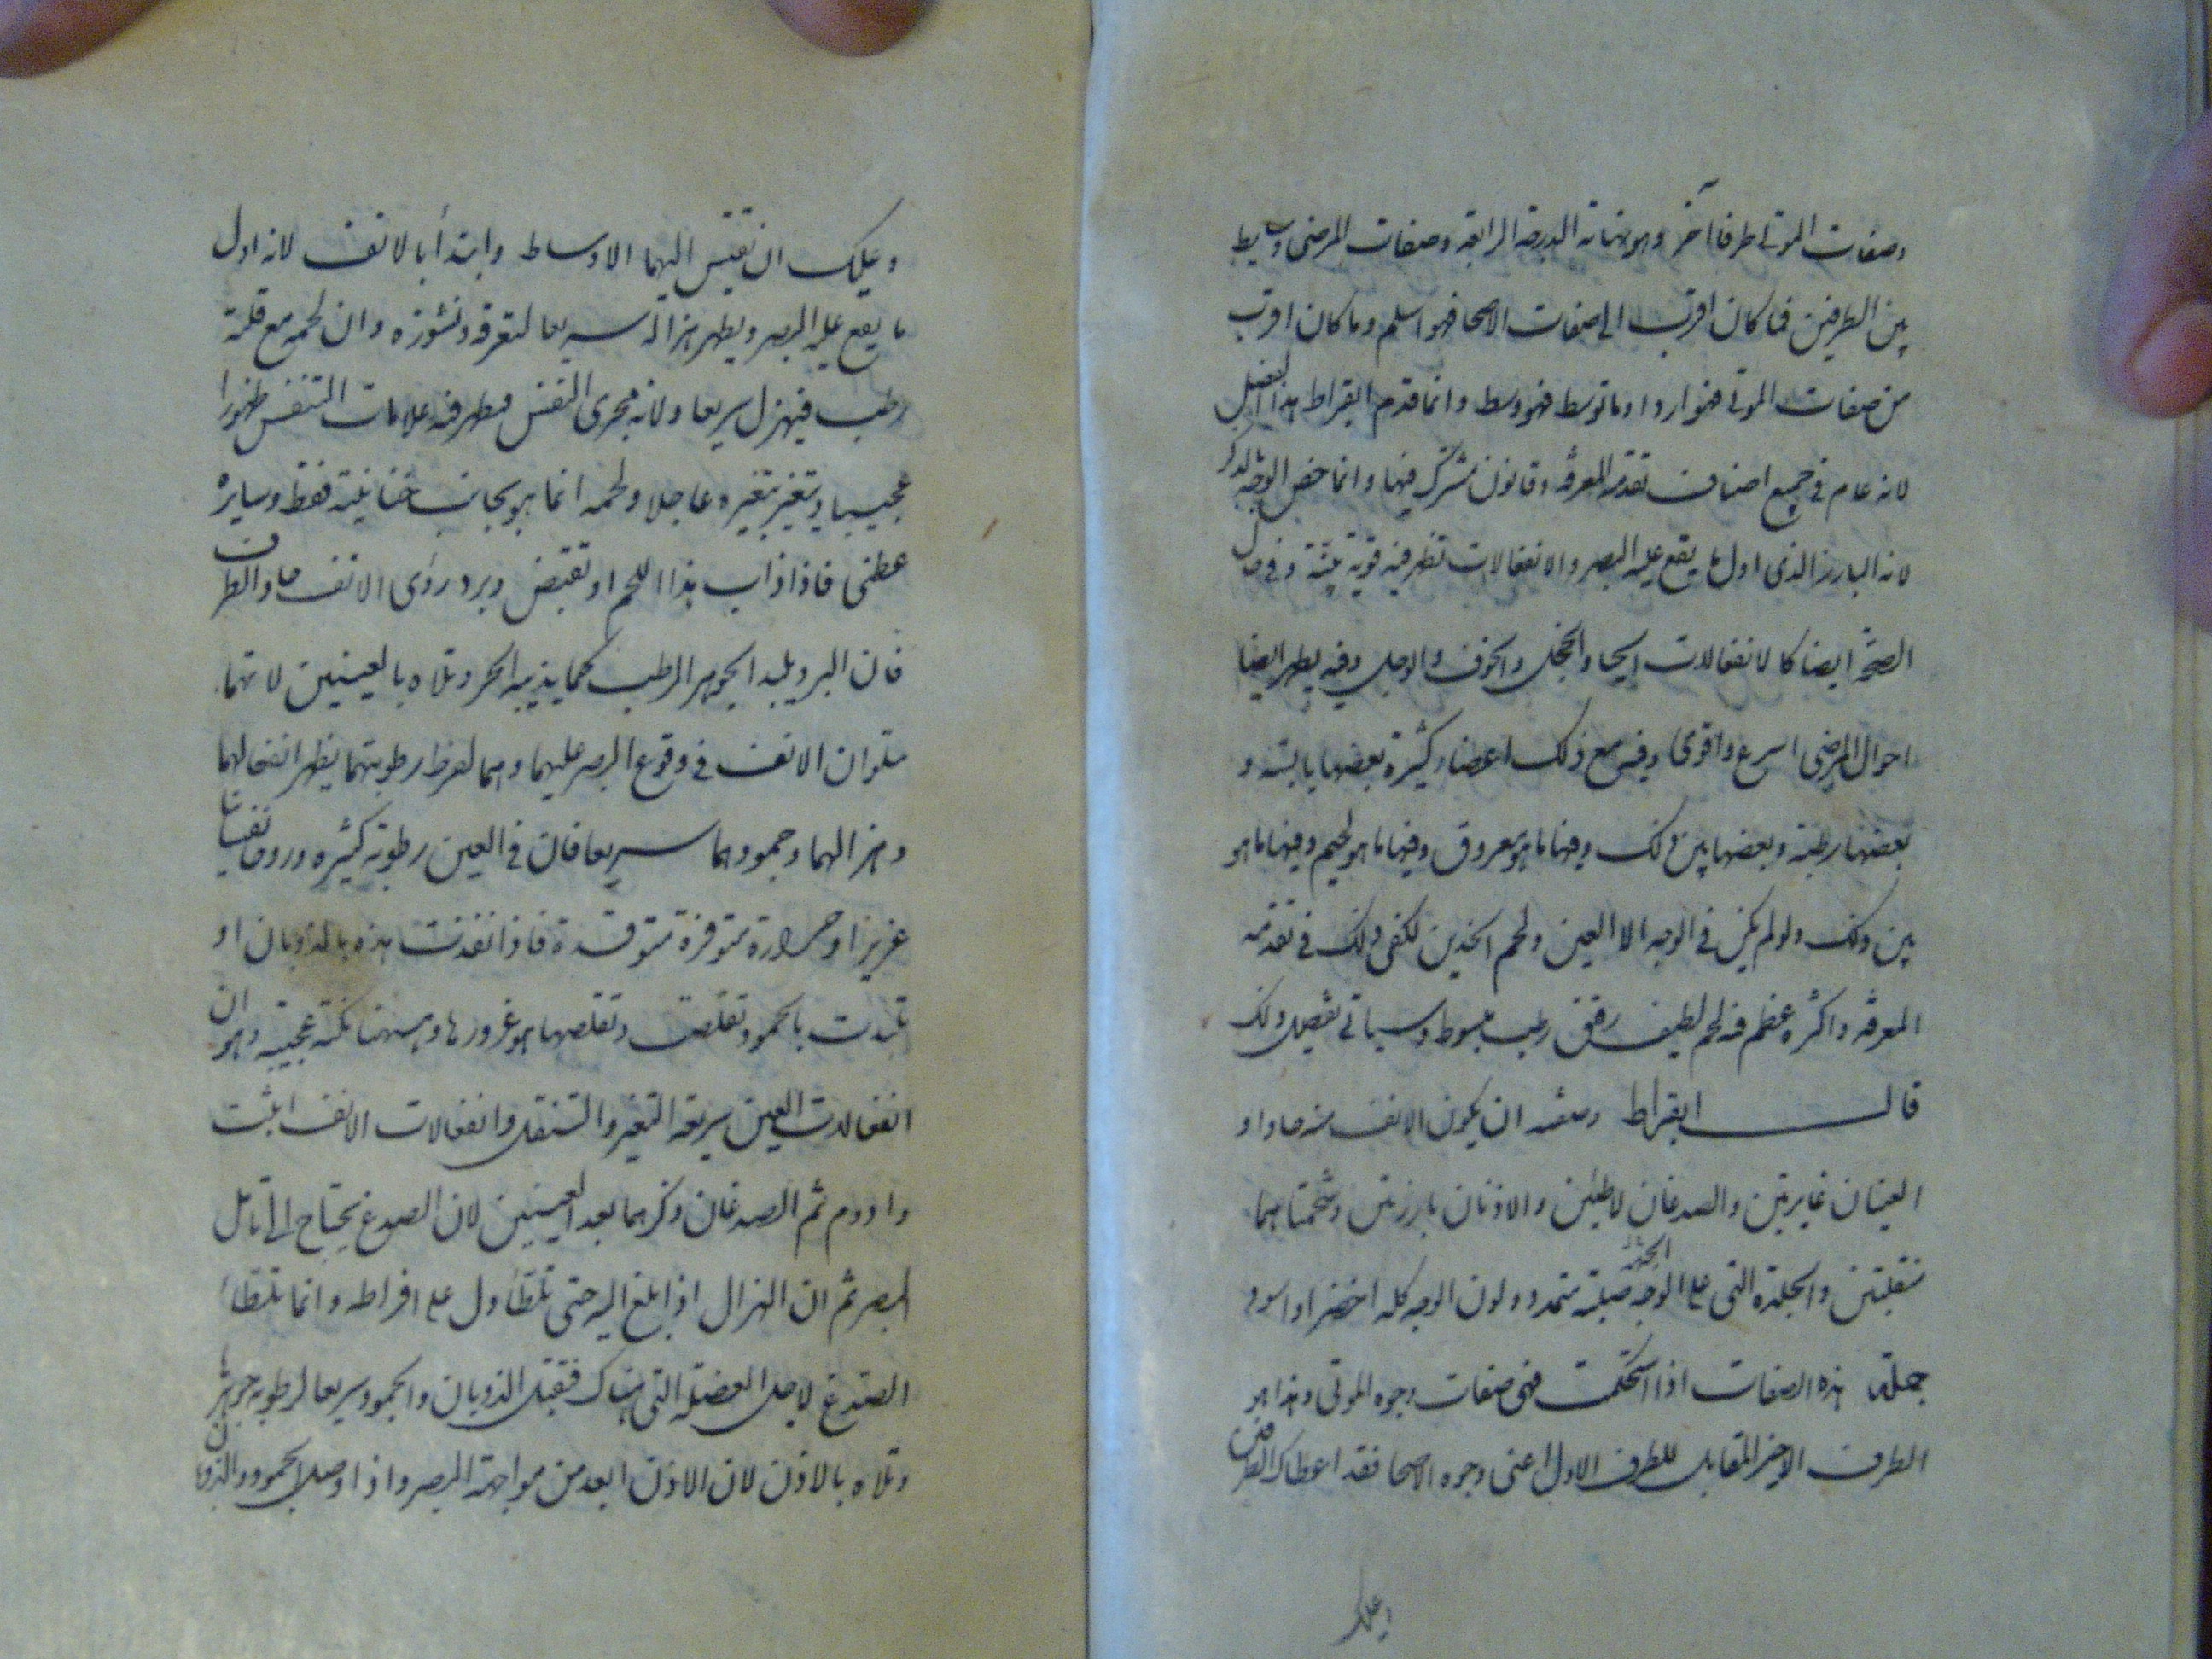 وصفات الموتى طرفا آخر وهو نهاية الدرجة الرابعة وصفات المرضى وسايط
بين الطرفين فما كان اقرب الى صفات الاصحا فهو اسلم وما كان اقرب
من صفات الموتى فهو اردا وما توسط فهو وسط وانما قدم ابقراط هذا الفصل
لانه عام في جميع اصناف تقدمة المعرفة وقانون مشترك فيها وانما خص الوجه بالذكر
لانه البارز الذى اول ما يقع عليه البصر والانفعالات تظهر فيه قوية بينة وفي حال
الصحة ايضا كالانفعالات الحيا والخجل والخوف والوجل وفيه يظهر ايضا
احوال المرضى اسرع واقوى وفيه مع ذلك اعضاء كثيرة بعضها يابسة و
بعضها رطبة وبعضها بين ذلك وفيها ما هو معروق وفيها ما هو لحيم وفيها ما هو
بين ذلك ولو لم يكن في الوجه الا العين ولحم الخدين لكفى ذلك في تقدمة
المعرفة واكثره عظم فيه لحم لطيف رقيق رطب مبسوط وسياتي تفصيل ذلك
قال ابقراط وصفته ان يكون الانف منه حادا و
العينان غايرتين والصدغان لاطئين والاذنان باردتين وشحمتاهما
منقلبتين والجلدة التي على الوجه الجبهة صلبة متمددة ولون الوجه كله اخضر او اسود
جملة هذه الصفات اذا استحكمت فهى صفات وجوه الموتى وهذا هو
الطرف الاخير المقابل للطرف الاول اعنى وجوه الاصحا فقد اعطاك الطرفين
وعليك
وعليك ان تقيس اليهما الاوساط وابتدأ بالانف لانه اول
ما يقع عليه البصر ويظهر هزاله سريعا لتعرقه ونشوزه وان لحمه مع قلته
رطب فيهزل سريعا ولانه مجرى النفس فيظهر فيه علامات التنفس ظهورا
عجيبا ويتغير بتغيره عاجلا ولحمه انما هو بجانب خنابتيه فقط وسايره
عظمى فاذا ذاب هذا اللحم او تقبض وبرد رؤى الانف حاد الطرف
فان البرد يلبد الجوهر الرطب كما يذيبه الحر وتلاه بالعينين لانهما
يتلوان الانف في وقوع البصر عليهما وهما لفرط رطوبتهما يظهر انفعالهما
وهزالهما وجمودهما سريعا فان في العين رطوبة كثيرة وروحا نفسانيا
غزيرا وحرارة متوفرة متوقدة فاذا نفدت هذه بالذوبان او
تلبدت بالجمود تقلصت وتقلصها هو غورها وههنا نكتة عجيبة وهو ان
انفعالات العين سريعة التغير والتنقل وانفعالات الانف اثبت
وادوم ثم الصدغان وذكرهما بعد العينين لان الصدغ يحتاج الى تامل
البصر ثم ان الهزال اذا بلغ اليه حتى تلطأ دل على افراطه وانما تلطأ
الصدغ لاجل العضلة التي هناك فتقبل الذوبان والجمود سريعا لرطوبة جوهرها
وتلاه بالاذن لان الاذن ابعد من مواجهة البصر واذا وصل الجمود والذوبان